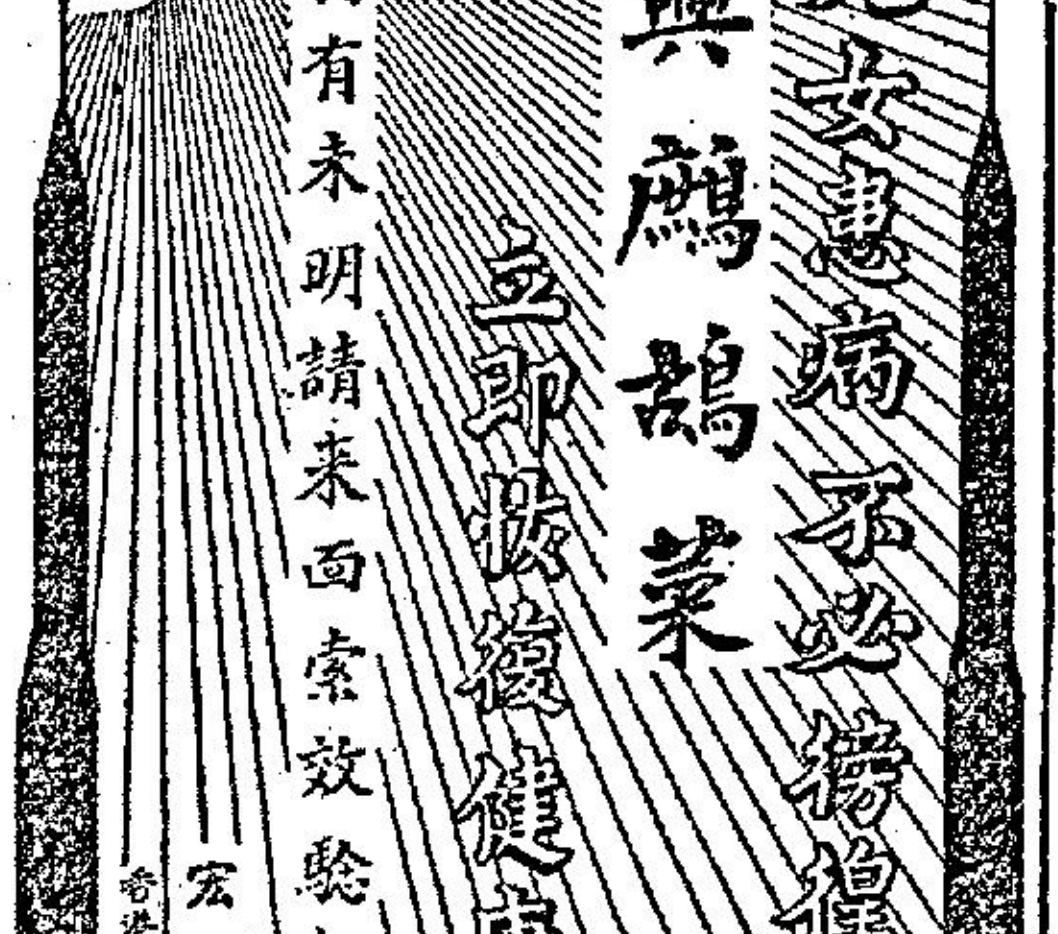 女患病不必徬徨
與鷓鴣菜
立即恢復健康
有未明請来面索效驗
宏
香港